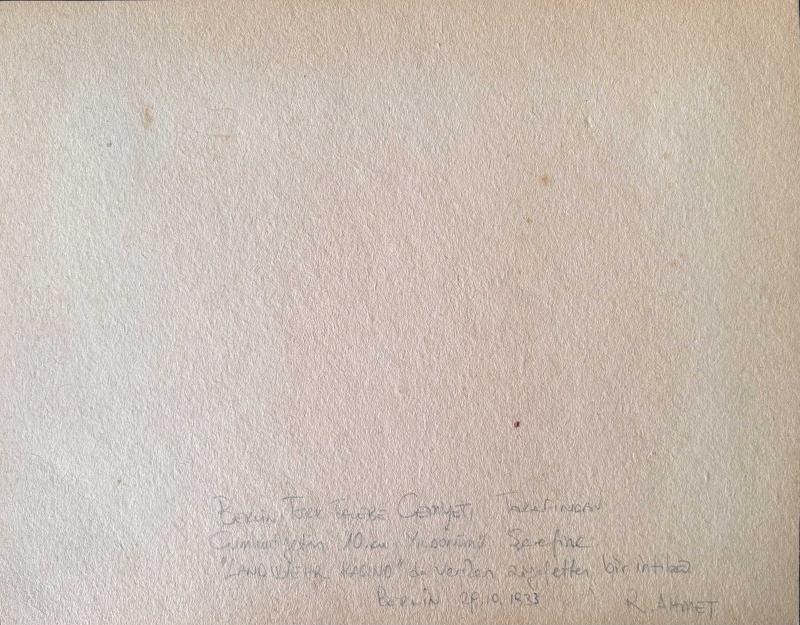 Berlin Türk Talebe Cemiyeti Tarafından
Cumhuriyetin 10.cu Yıldönümü Şerefine
"LANDWEHR KASINO" da verilen ziyafetten bir intiba
BERLİN 29.10.1933 R. AHMET